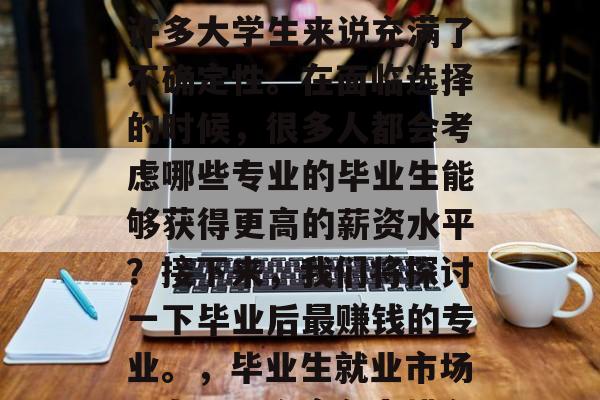 许多大学生来说充满了
不确定性。在面临选择
的时候，很多人都会考
虑哪些专业的毕业生能
够获得更高的薪资水平
？接下来，我们将探讨
一下毕业后最赚钱的专
业。，毕业生就业市场